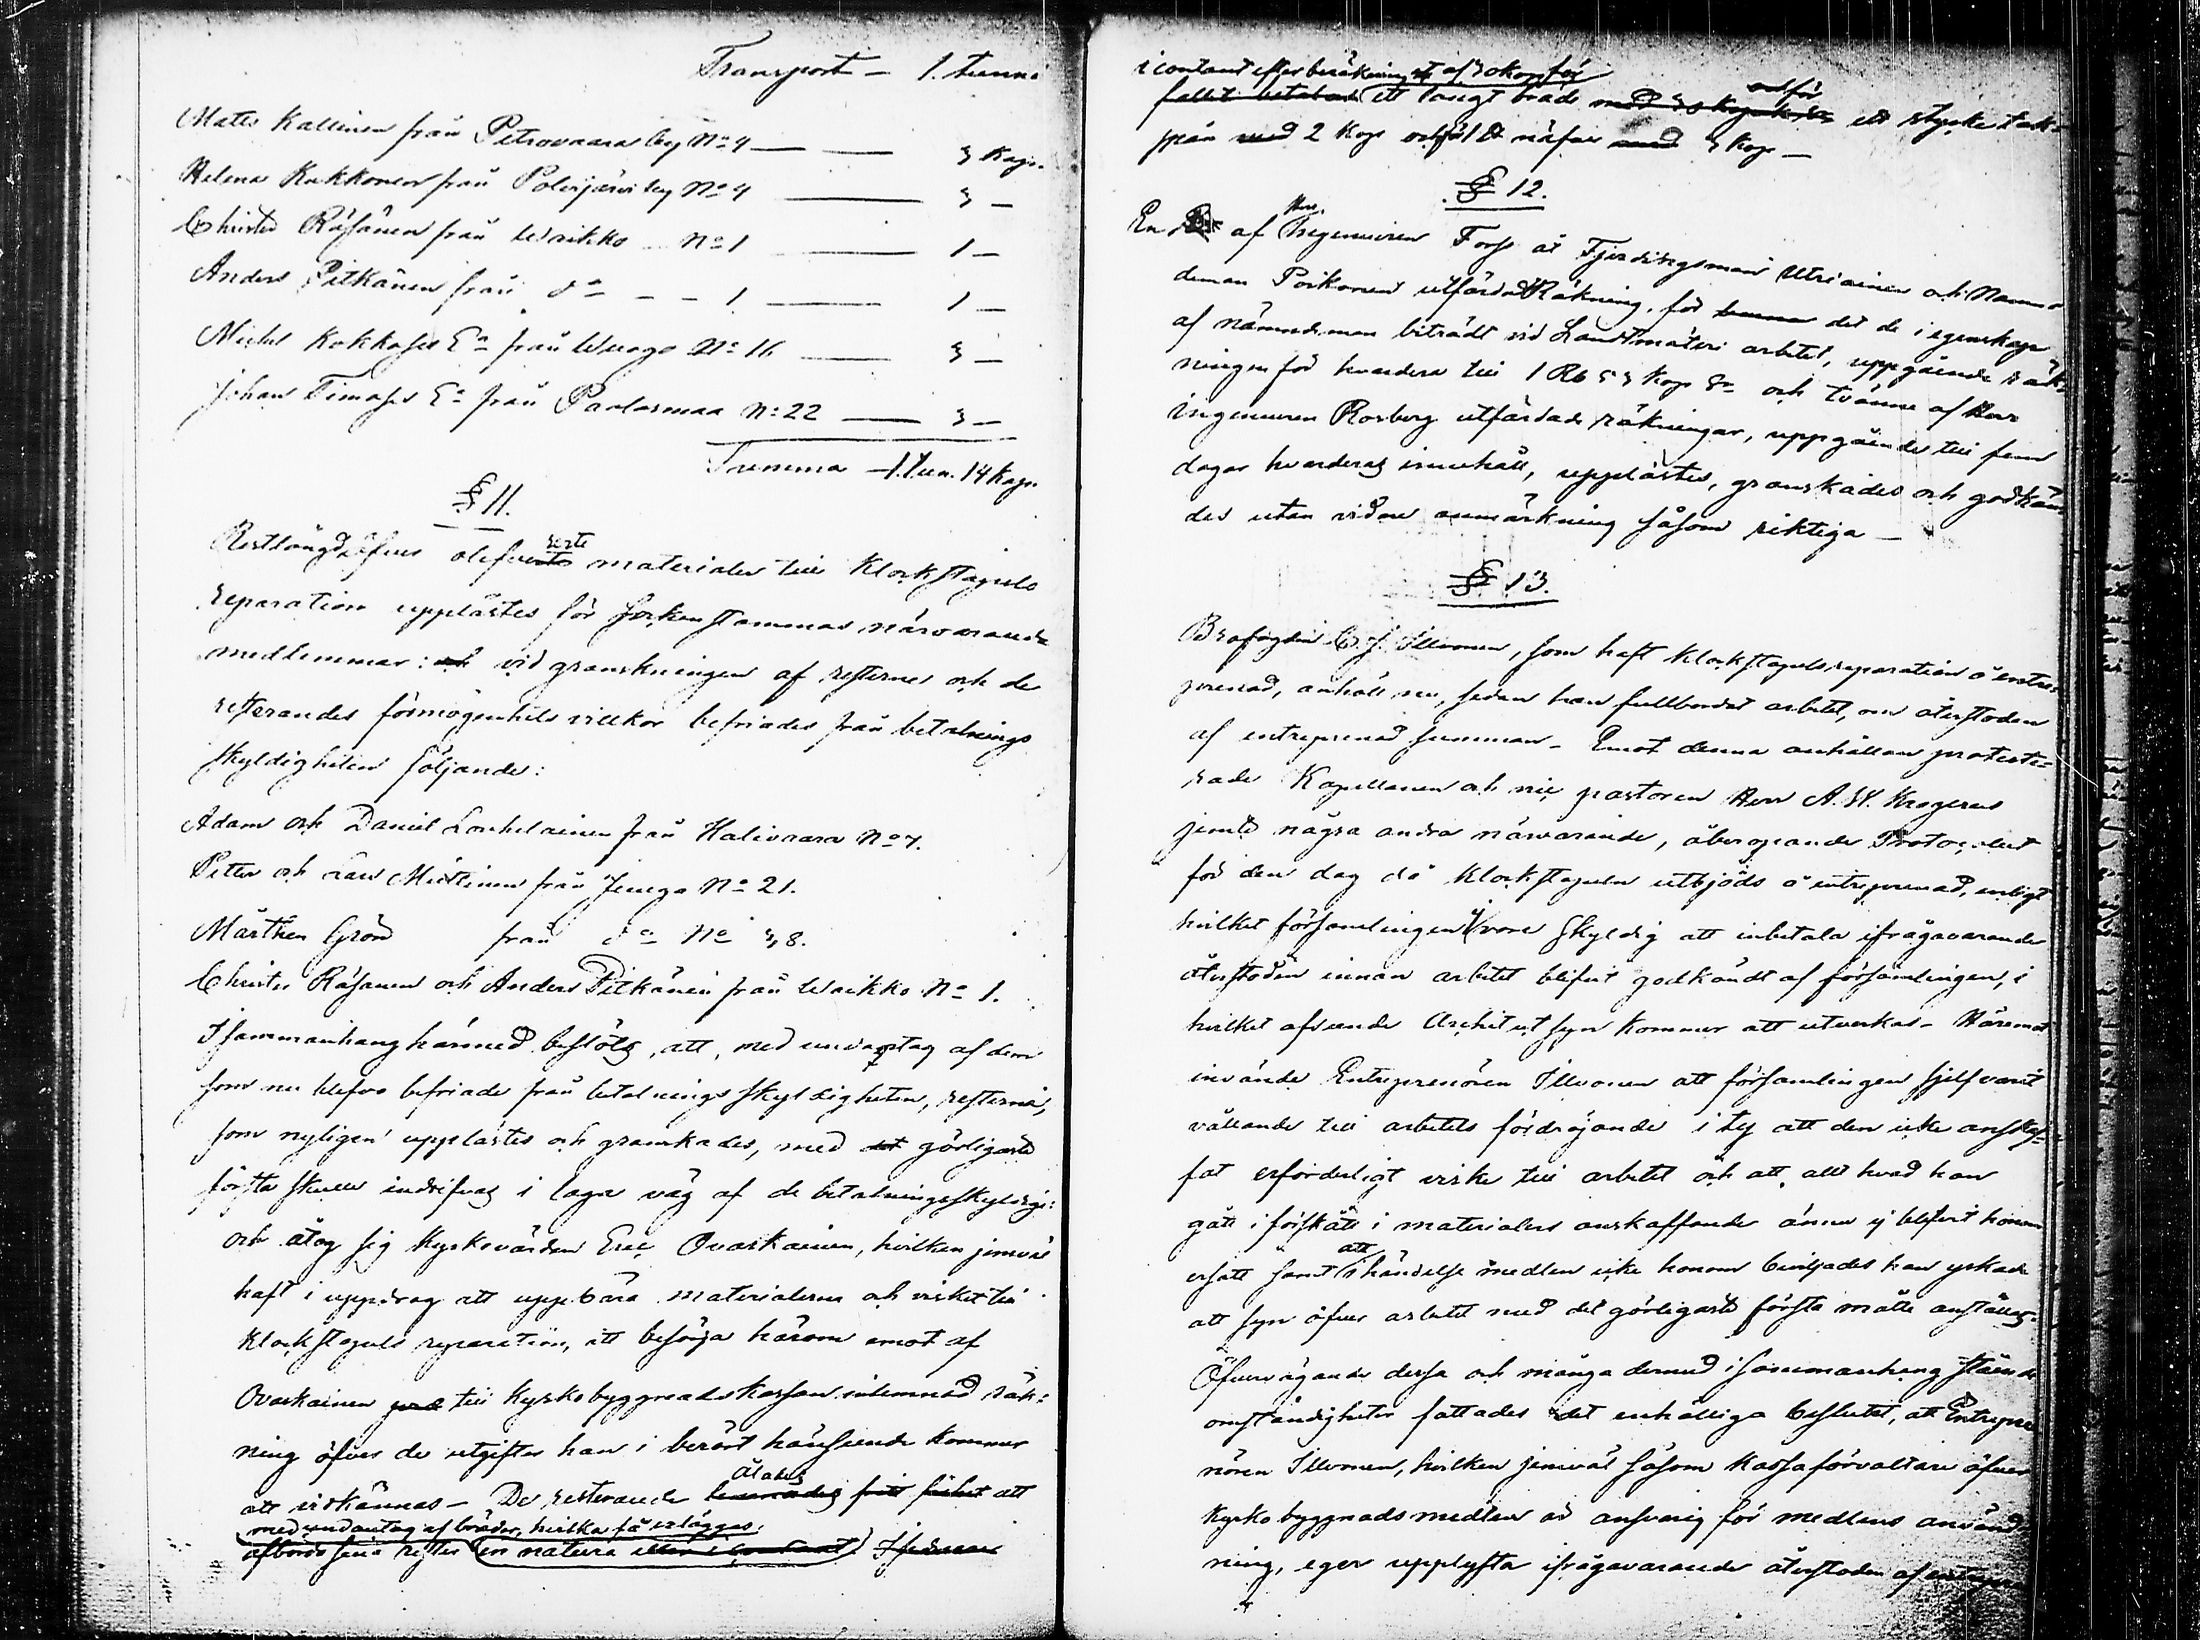 Transport – 1. tunna
Matts Kallinen från Petrovaara by No 4 — — 3 Kap.
Helena Kukkonen från Polvijärvi by No 4 — 3 –
Christer Räsänen från Waikko – No 1 — 1 –
Anders Pitkänen från do – – 1 — 1 –
Michel Kokkases Ea från Wuogo No 16 — 3 –
Johan Timases Ea från Paalasmaa No 22 — 3 –
Summa – 1. tun. 14 Kap.
§ 11.
Restlängd öfver olefvererte materialer till Klockstapels
reparation upplästes för Sockenstammas närvarande
medlemmar: och vid granskningen af resterne och de
resterandes förmögenhets villkor befriades från betalnings
skyldigheten följande:
Adam och Daniel Louhelainen från Halivaara No 7.
Petter och Lars Miettinen från Juuga No 21.
Mårthen Grön från do No 38.
Christer Räsänen och Anders Pitkänen från Waikko No 1.
I sammanhang härmed beslöts, att, med undantag af dem
som nu blefvo befriade från betalnings skyldigheten, resterna,
som nyligen upplästes och granskades, med det görligaste
första skulle indrifvas i laga väg af de betalningsskyldige:
och åtog sig Kyrkovärden Eric Ovaskainen, hvilken jemväl
haft i uppdrag att uppbära materialerna och virket till
Klockstapels reparation, att besörja härom emot af
Ovaskainen till Kyrkobyggnadskassan inlemnad räk=
ning öfver de utgifter han i berört hänseende kommer
att vidkännas – De resterande lemnades ålades fritt att
med undantag af bräder, hvilka få erläggas
afbörda sina rester in natura eller i contant.
i contant efter beräkning af 30 kop för
ett långt bräde med och för ett stycke tak=
spån med 2 Kop och för 1 näfver med 3 Kop –
§ 12.
En af Herr Ingenieuren Forss åt Fjerdingsman Utriainen och Nämnde
deman Poikonen utfärdad Räkning, för det de i egenskap
af nämndeman biträdt vid Landtmäteri arbetet, uppgående räk=
ningen för hvardera till 1 Rb 53 Kop Sr och tvänne af Herr
Ingenieuren Rosberg utfärdade räkningar, uppgående till fem
dagar hvarderas innehåll, upplästes, granskades och godkän=
des utan vidare anmärkning såsom riktiga –
§ 13.
Brofogden C. J. Illvonen, som haft Klockstapels reparation å entre=
prenad, anhöll nu, sedan han fullbordat arbetet, om återstoden
af entreprenad summan – Emot denna anhållan proteste=
rade Kapellanen och vice pastoren Herr A. W. Krogerus
jemte några andra närvarande, åberopande Protocollet
för den dag då Klockstapeln utbjöds å entreprenad, enligt
hvilket församlingen ej vore skyldig att inbetala ifrågavarande
återstoden innan arbetet blifvit godkändt af församlingen, i
hvilket afseende Architect syn kommer att utverkas – Häremot
invände Entreprenören Illvonen att församlingen sjelf varit
vållande till arbetets fördröjande i ty att den icke anskaf=
fat erforderligt virke till arbetet och att allt hvad han
gått i förskått i materialers anskaffande ännu ej blifvit honom
ersatt samt att i händelse medlen icke honom beviljades han yrkade
att syn öfver arbetet med det görligaste första måtte anställas.
Öfvervägande dessa och många dermed i sammanhang stående
omständigheter fattades det enhälliga beslutet, att Entrepre
nören Illvonen, hvilken jemväl såsom Kassaförvaltare öfver
Kyrkobyggnadsmedlen är ansvarig för medlens använd
ning, eger upplyfta ifrågavarande återstoden af